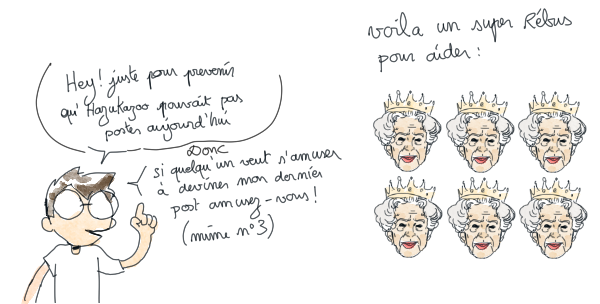 Hey! juste pour prevenir
qu'Hazukazoo pouvait pas
poster aujourd'hui
Donc
si quelqu'un veut s'amuser
à deviner mon dernier
post amusez-vous!
(mime n°3)
voila un super Rébus
pour aider: